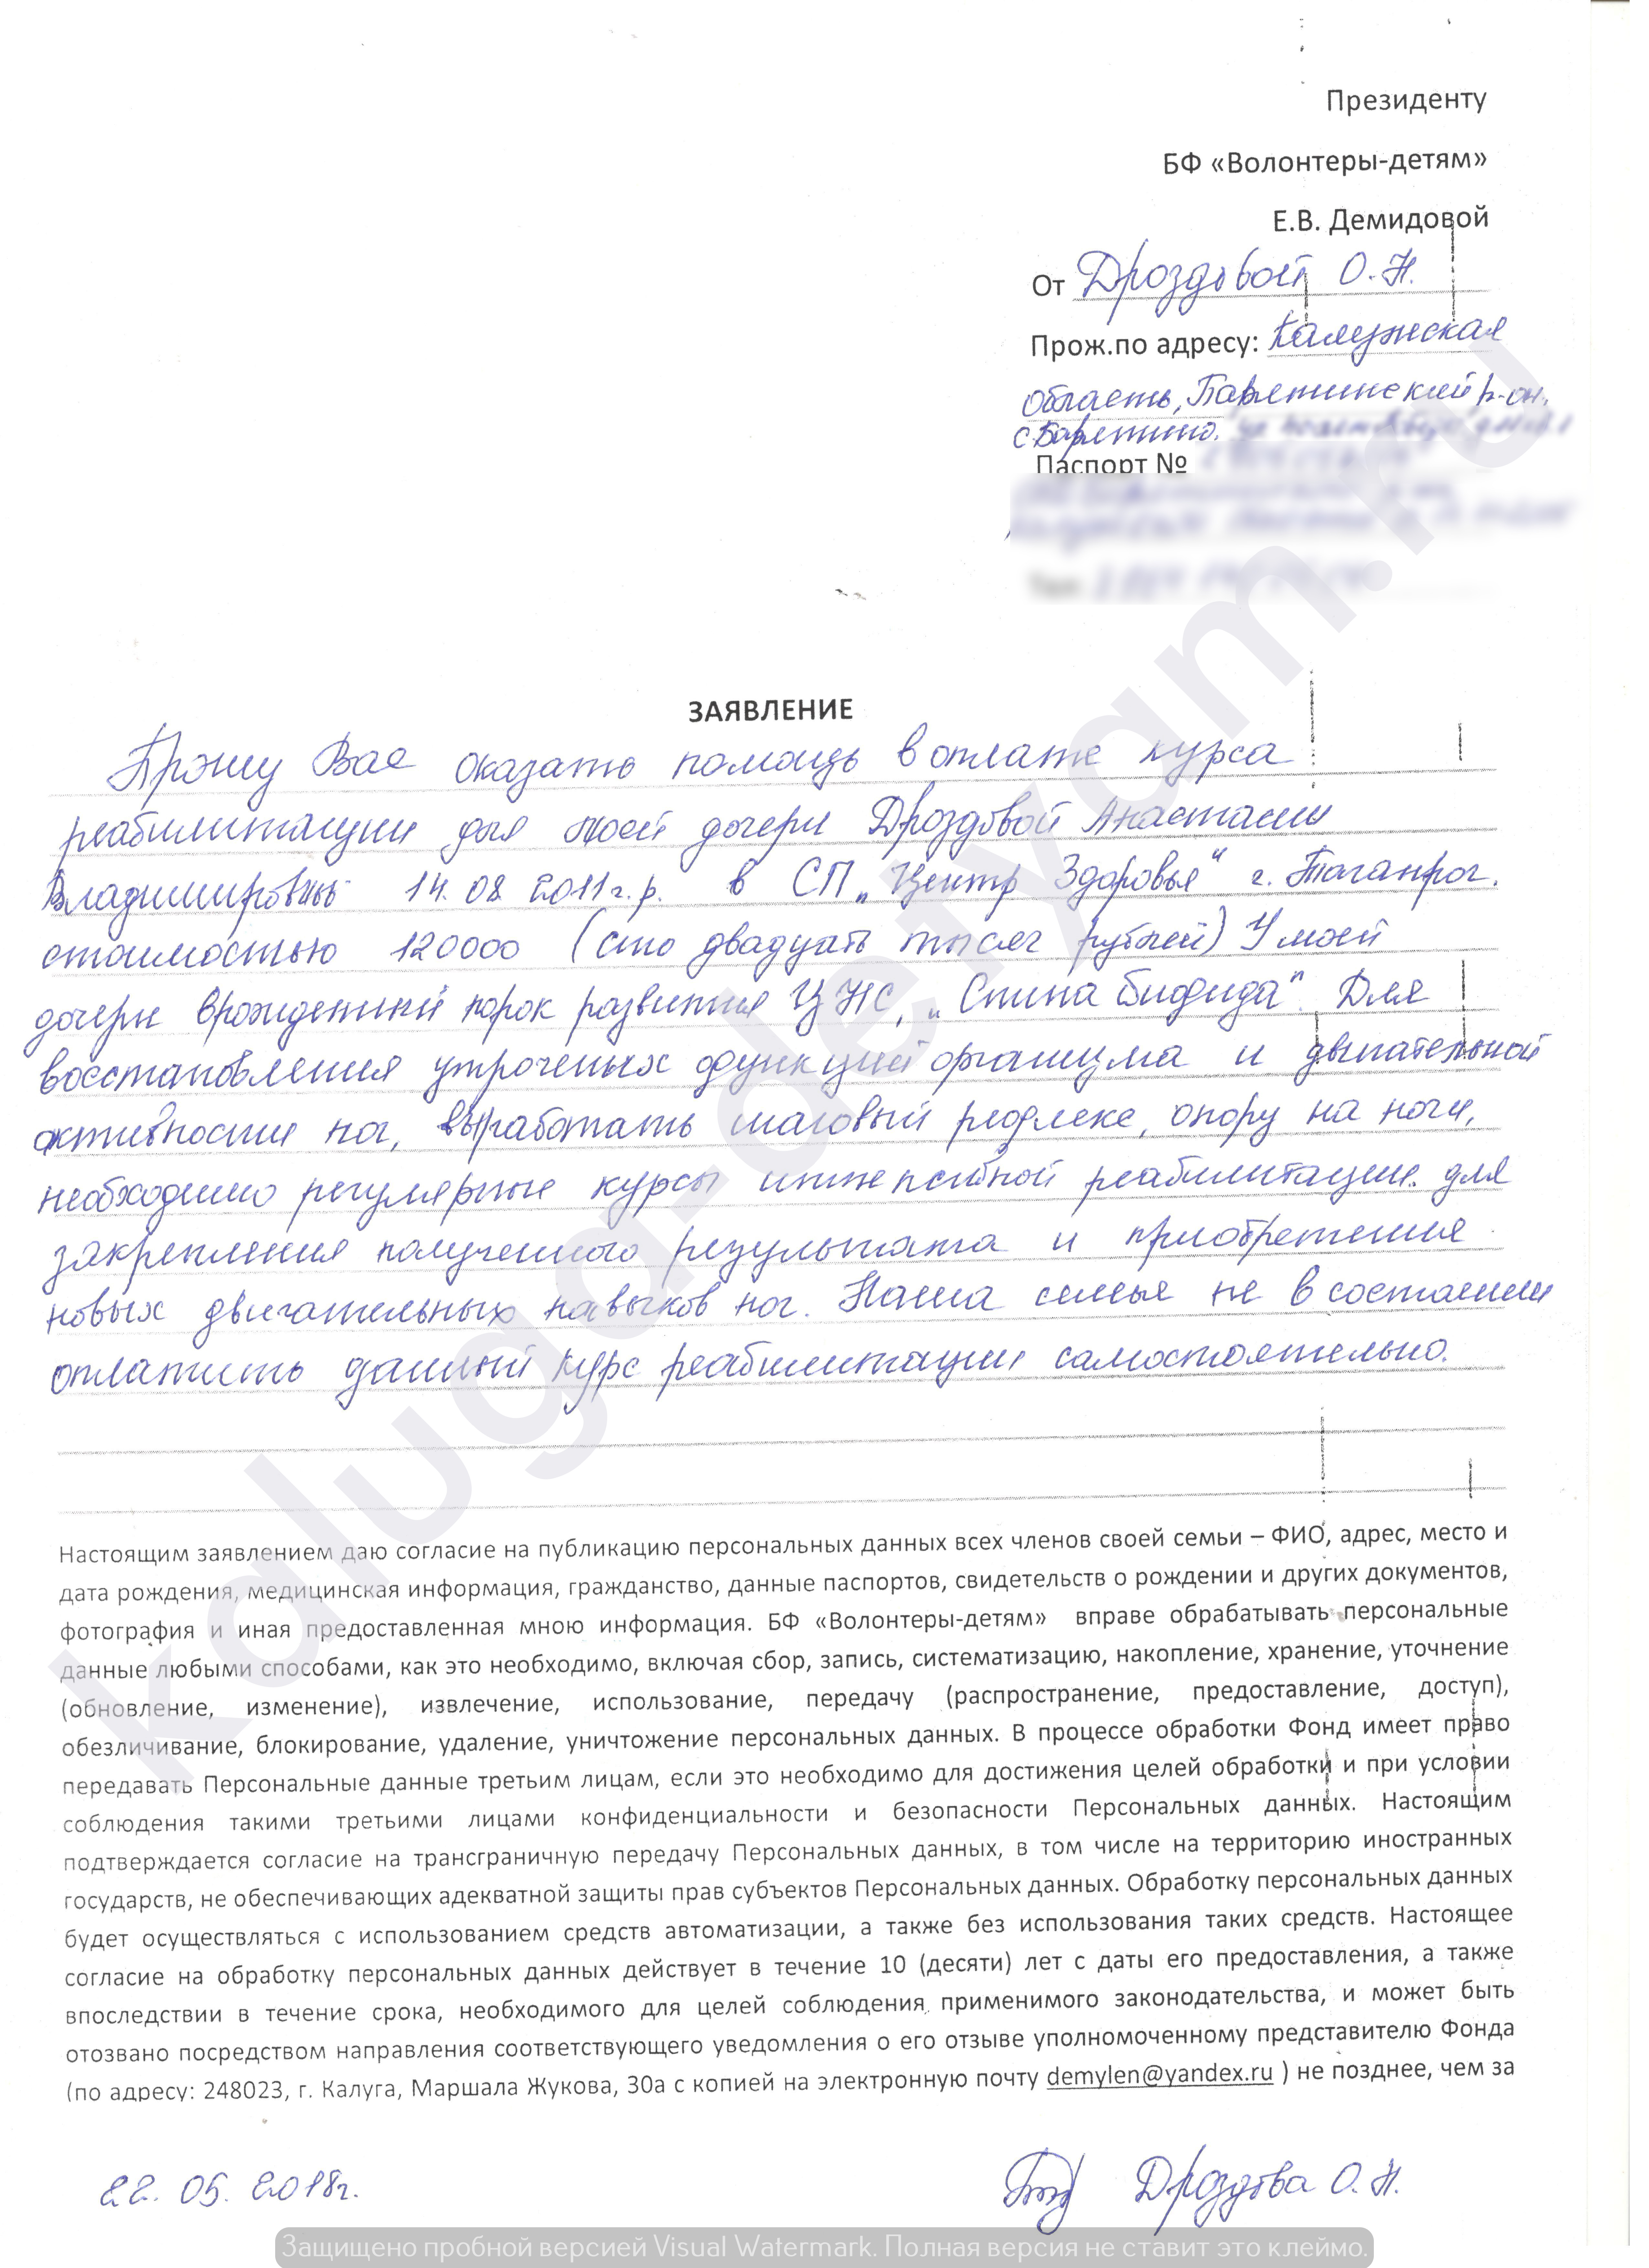 Президенту
БФ «Волонтеры-детям»
Е.В. Демидовой
От Дроздовой О.Н.
Прож.по адресу: Калужская
область, Барятинский р-он,
с Барятино.
Паспорт №
ЗАЯВЛЕНИЕ
Прошу Вас оказать помощь в оплате курса
реабилитации для моей дочери Дроздовой Анастасии
Владимировны 14.08 2011г.р. в СП „Центр Здоровья“ г. Таганрог.
стоимостью 120000 (сто двадцать тысяч рублей) У моей
дочери врожденный порок развития ЦНС, „Спина бифида“. Для
восстановления утроченых функций организма и двигательной
активности ног, выработать шаговый рефлекс, опору на ноги,
необходимо регулярные курсы интенсивной реабилитации. для
закрепления полученного результата и приобретения
новых двигательных навыков ног. Наша семья не в состоянии
оплатить данный курс реабилитации самостоятельно.
Настоящим заявлением даю согласие на публикацию персональных данных всех членов своей семьи – ФИО, адрес, место и
дата рождения, медицинская информация, гражданство, данные паспортов, свидетельств о рождении и других документов,
фотография и иная предоставленная мною информация. БФ «Волонтеры-детям» вправе обрабатывать персональные
данные любыми способами, как это необходимо, включая сбор, запись, систематизацию, накопление, хранение, уточнение
(обновление, изменение), извлечение, использование, передачу (распространение, предоставление, доступ),
обезличивание, блокирование, удаление, уничтожение персональных данных. В процессе обработки Фонд имеет право
передавать Персональные данные третьим лицам, если это необходимо для достижения целей обработки и при условии
соблюдения такими третьими лицами конфиденциальности и безопасности Персональных данных. Настоящим
подтверждается согласие на трансграничную передачу Персональных данных, в том числе на территорию иностранных
государств, не обеспечивающих адекватной защиты прав субъектов Персональных данных. Обработку персональных данных
будет осуществляться с использованием средств автоматизации, а также без использования таких средств. Настоящее
согласие на обработку персональных данных действует в течение 10 (десяти) лет с даты его предоставления, а также
впоследствии в течение срока, необходимого для целей соблюдения применимого законодательства, и может быть
отозвано посредством направления соответствующего уведомления о его отзыве уполномоченному представителю Фонда
(по адресу: 248023, г. Калуга, Маршала Жукова, 30а с копией на электронную почту demylen@yandex.ru ) не позднее, чем за
22. 05. 2018г.
Дроздова О.Н.
kaluga-detyam.ru
Защищено пробной версией Visual Watermark. Полная версия не ставит это клеймо.